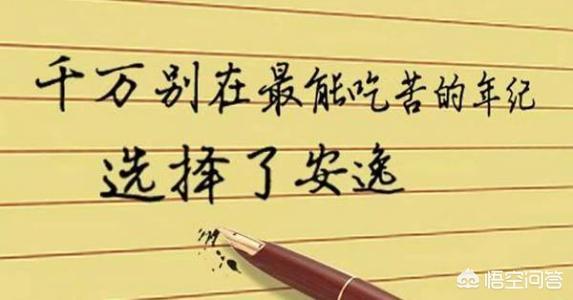 千万别在最能吃苦的年纪
选择了安逸
悟空问答